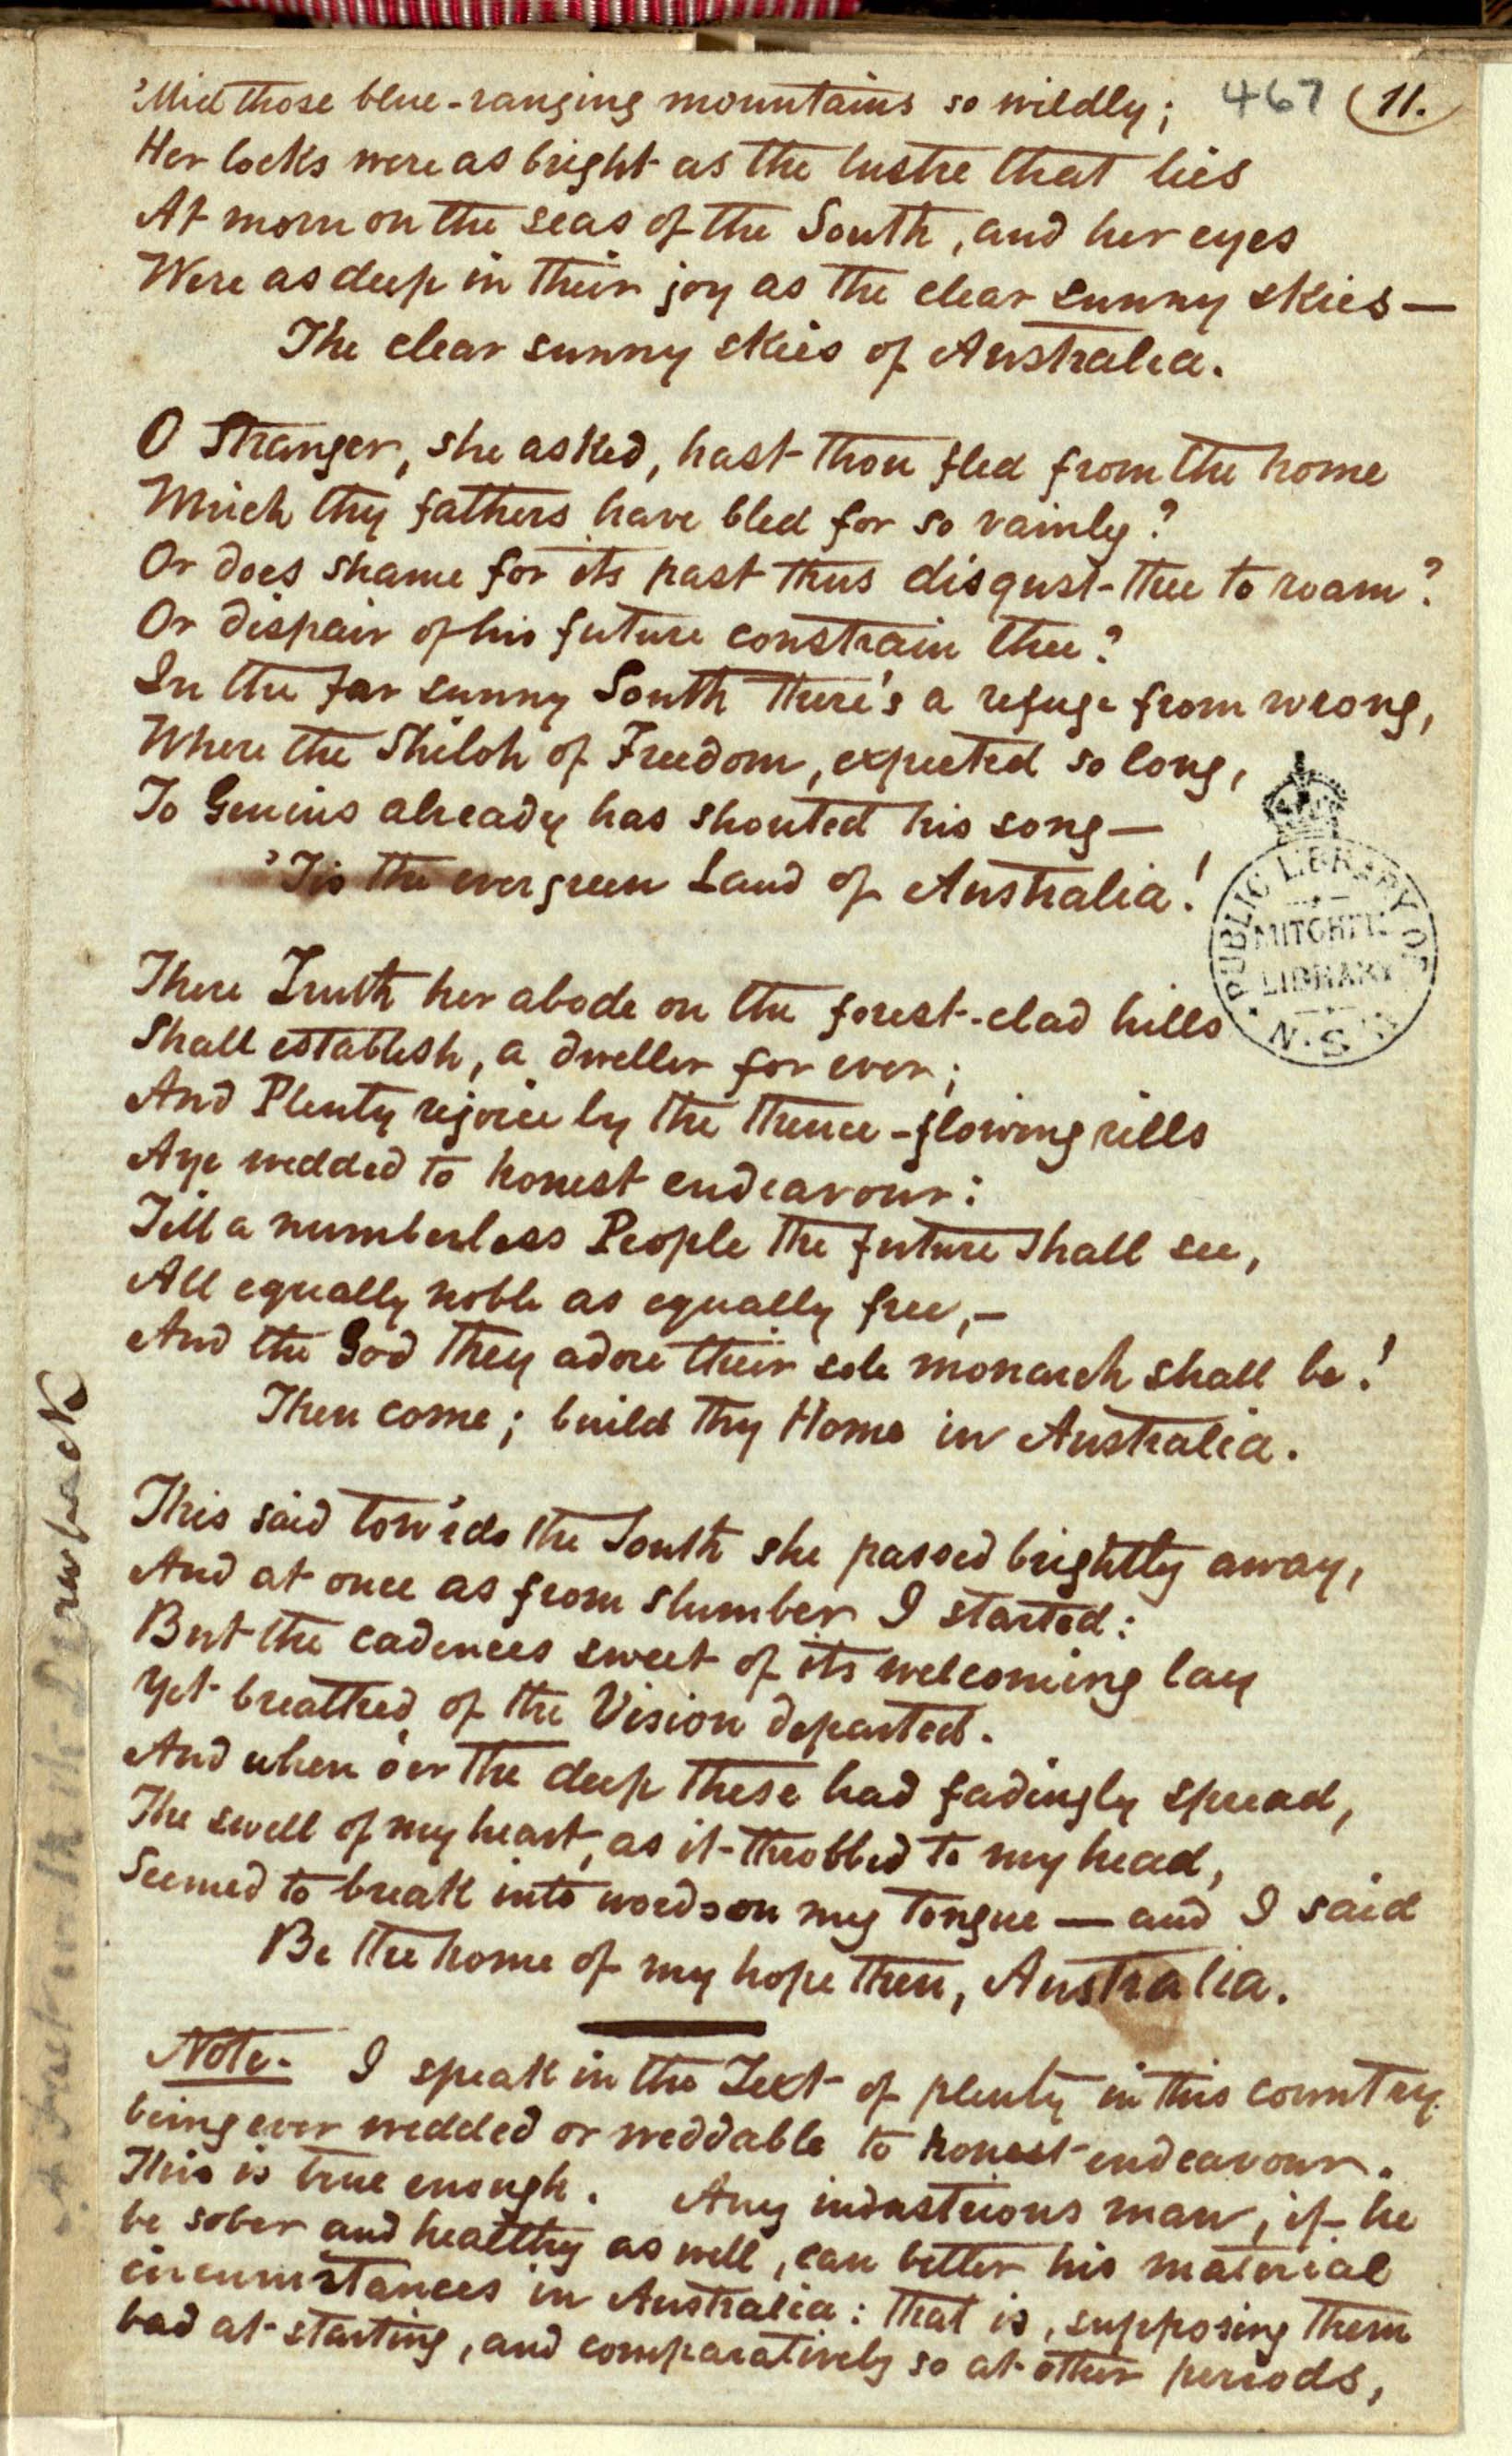 'Mid those blue-ranging mountains so wildly; 467 (11.
Her locks were as bright as the lustre that lies
At morn on the seas of the South, and her eyes
Were as deep in their joy as the clear sunny skies—
The clear sunny skies of Australia.
O Stranger, she asked, hast thou fled from the home
Which thy fathers have bled for so vainly?
Or does shame for its past thus disgust thee to roam?
Or dispair of his future constrain thee?
In the far sunny South there's a refuge from wrong,
Where the Shiloh of Freedom, expected so long,
To Genius already has shouted his song—
'Tis the evergreen Land of Australia!
PUBLIC LIBRARY OF
MITCHELL
LIBRARY
N.S.W.
There Truth her abode on the forest-clad hills
Shall establish, a dweller for ever;
And Plenty rejoice by the thence-flowing rills
Aye wedded to honest endeavour:
Till a numberless People the future shall see,
All equally noble as equally free,—
And the God they adore their sole monarch shall be!
Then come; build thy Home in Australia.
This said tow'rds the South she passed brightly away,
And at once as from slumber I started:
But the cadences sweet of its welcoming lay
Yet breathed of the Vision departed.
And when o'er the deep these had fadingly spread,
The swell of my heart, as it throbbed to my head,
Seemed to break into words on my tongue — and I said
Be the home of my hope then, Australia.
Note. I speak in the Text of plenty in this country
being ever wedded or weddable to honest endeavour.
This is true enough. Any industrious man, if he
be sober and healthy as well, can better his material
circumstances in Australia: that is, supposing them
bad at starting, and comparatively so at other periods,
drawback